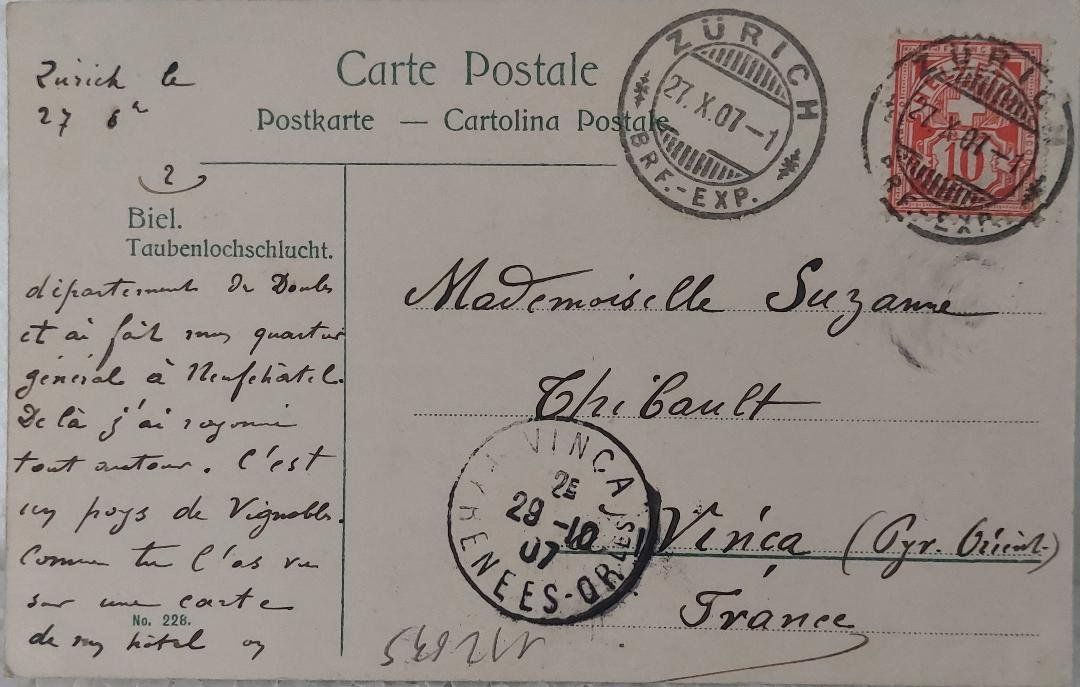 Carte Postale
Postkarte — Cartolina Postale
Zürich le
27 8re
2
Biel.
Taubenlochschlucht.
département du Doubs
et ai fait mon quartier
général à Neufchâtel.
De là j'ai rayonné
tout autour. C'est
un pays de Vignobles.
Comme tu l'as vu
sur une carte
de mon hôtel
No. 228.
ZÜRICH
27.X.07-1
BRF.-EXP.
ZÜRICH
27.X.07-1
BRF.-EXP.
10
Mademoiselle Suzanne
Thibault
Vinça (Pyr. Orient.)
France
VINÇA
2E
29-10
07
PYRENEES-ORLES